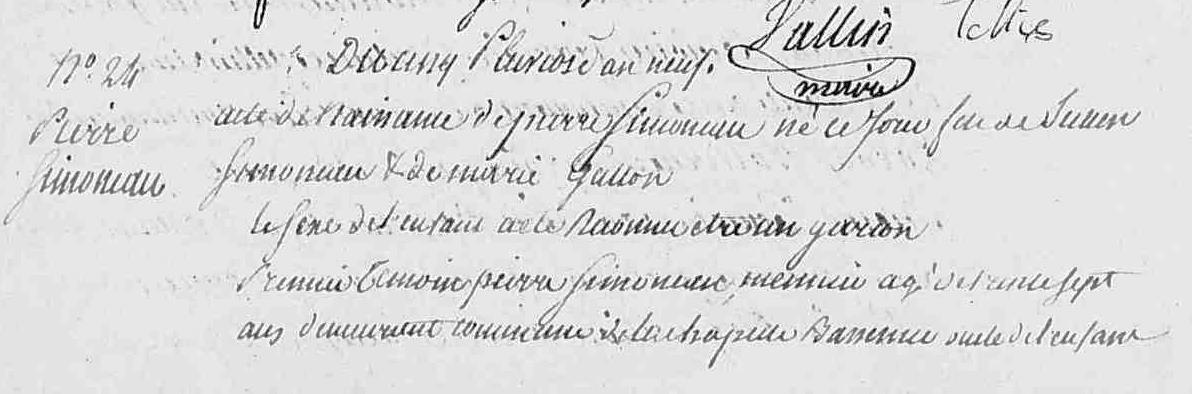 Vallin
maire
N° 24
Pierre
Simoneau
Du cinq Pluviose an neuf.
acte de Naissance de pierre Simoneau né ce Jour fils de
Simoneau & de marie Gallon
le sexe de l'enfant a été Reconnu être un garson
Premier Temoin pierre Simoneau, meunier agé de trente sept
ans demeurant commune de la chapelle Basmere oncle de l'enfant